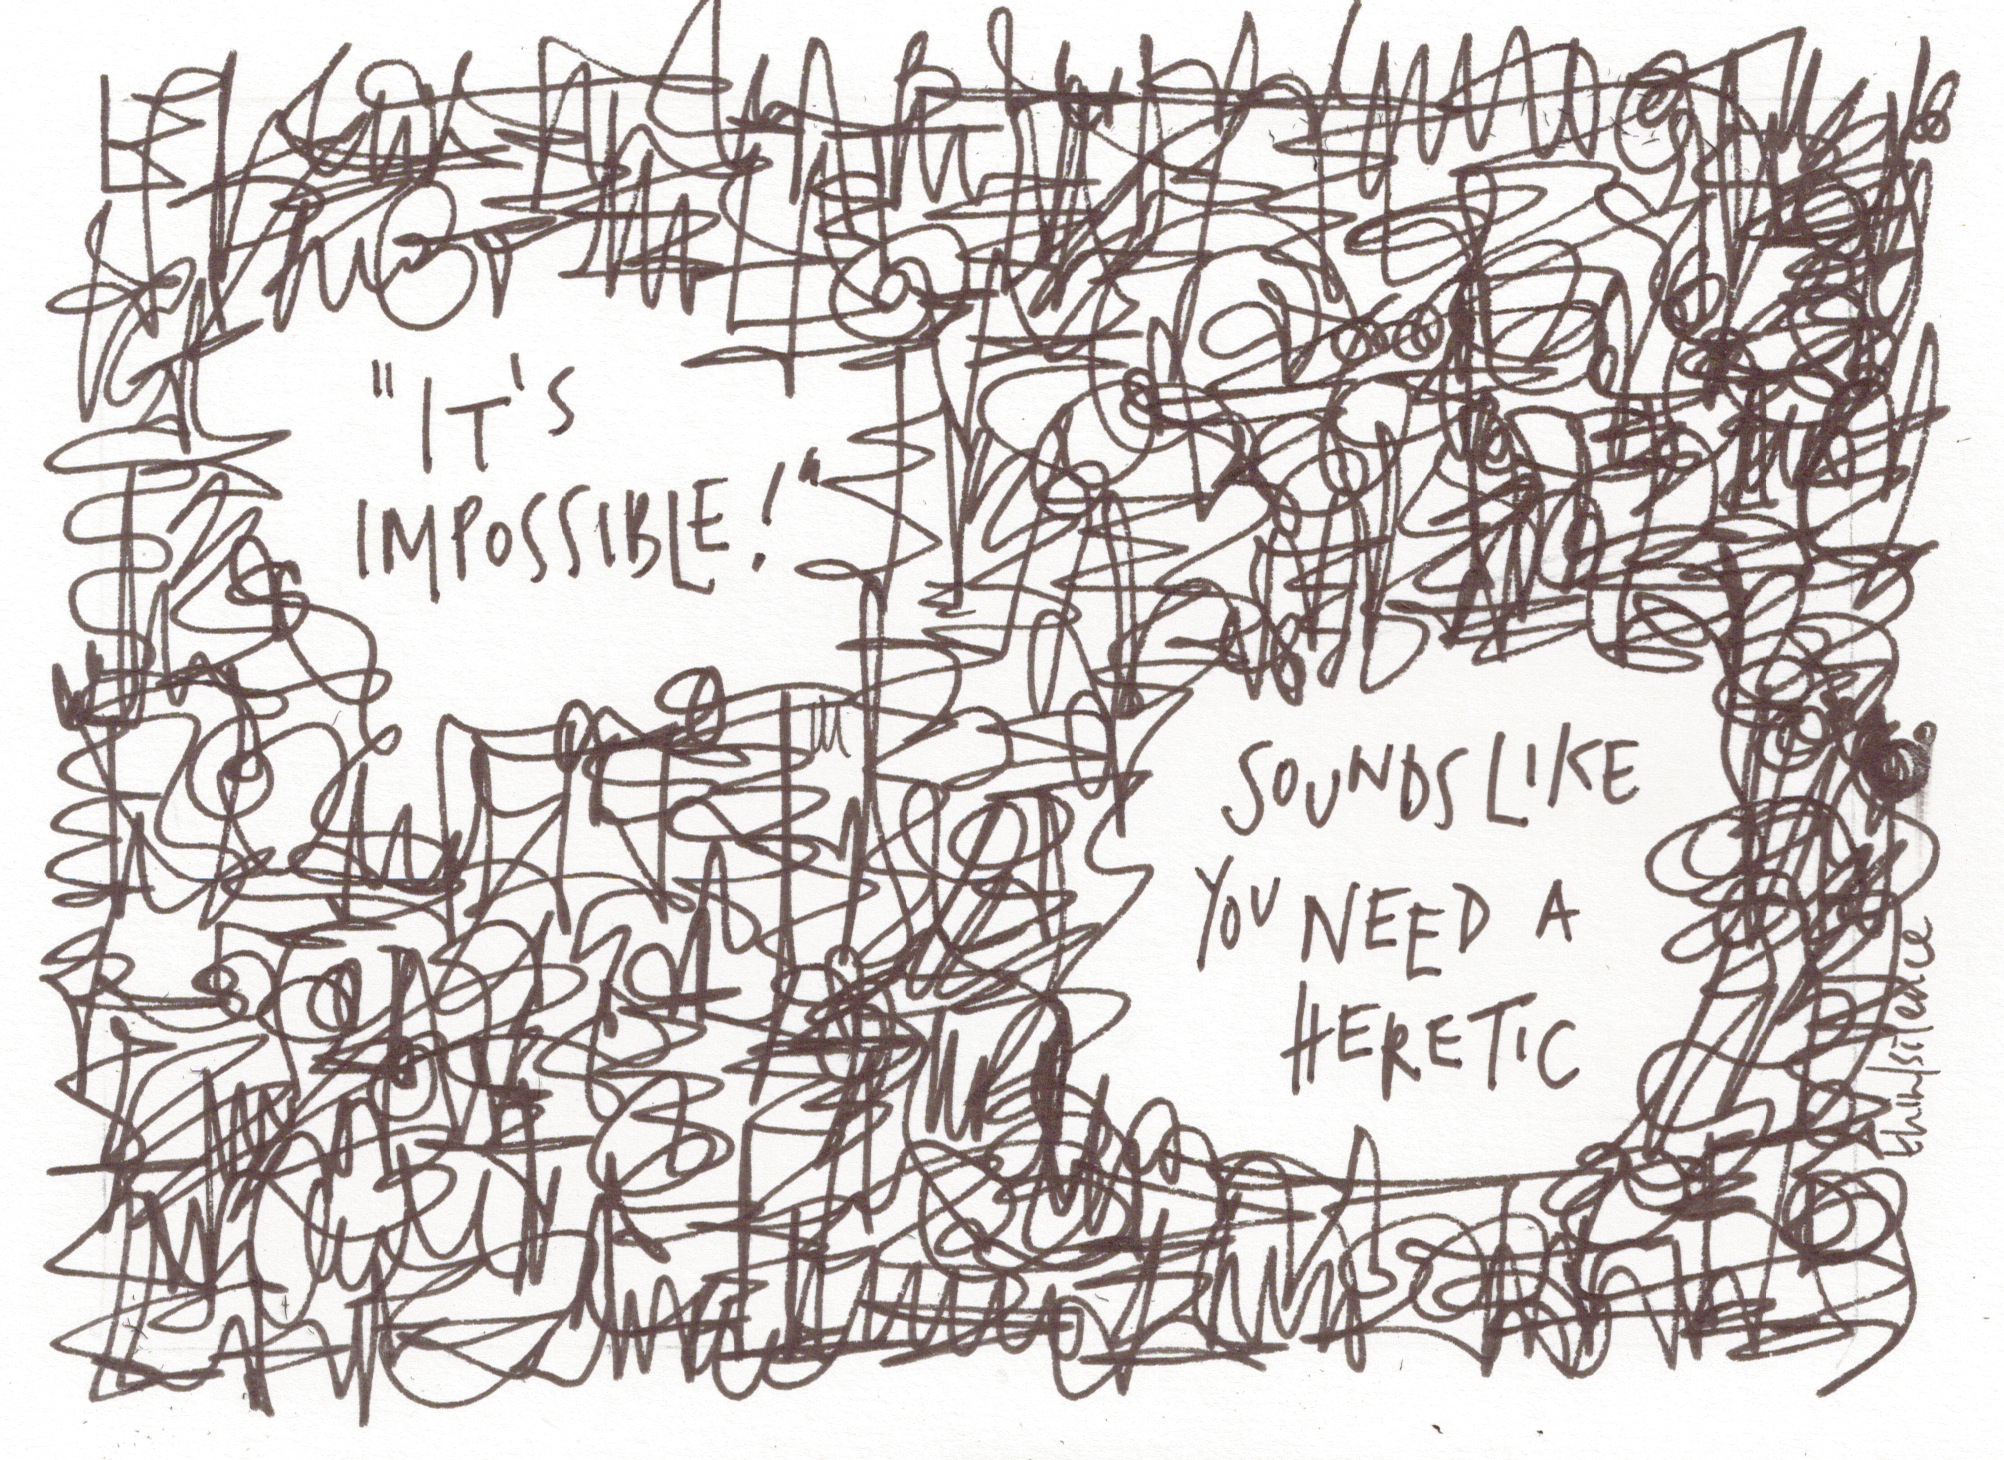 "IT'S
IMPOSSIBLE!"
SOUNDS LIKE
YOU NEED A
HERETIC